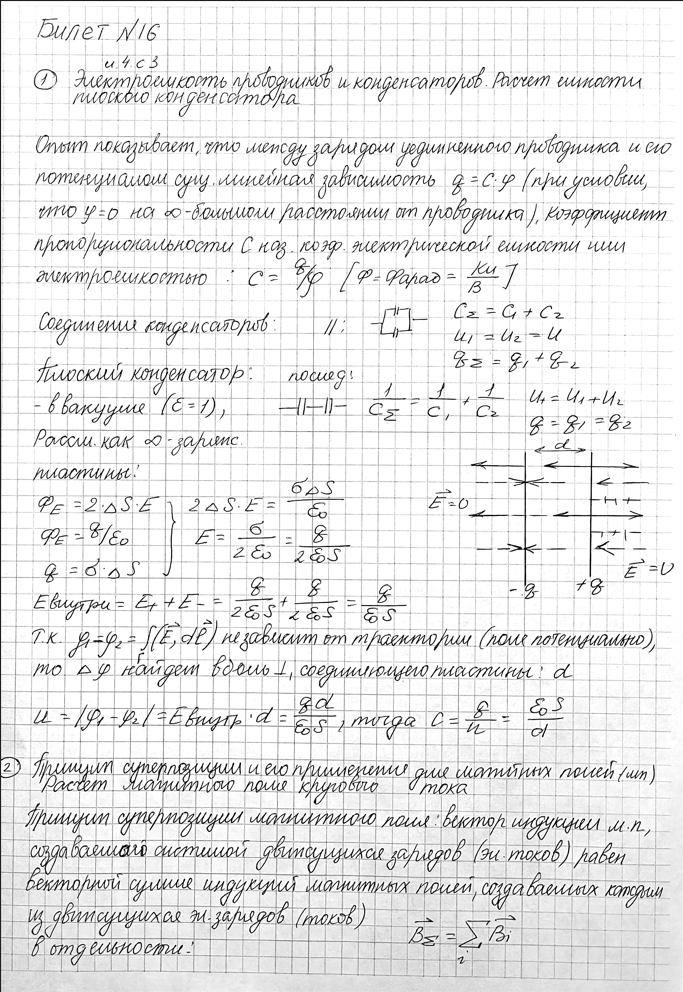 Билет №16
и.4.с3
① Электроемкость проводников и конденсаторов. Расчет емкости
плоского конденсатора
Опыт показывает, что между зарядом уединненного проводника и его
потенциалом сущ. линейная зависимость q = C·φ (при условии,
что φ=0 на ∞-большом расстоянии от проводника), Коэффициент
пропорциональности С наз. коэф. электрической емкости или
электроемкостью : C = q/φ [Ф = Фарад = Кл/В]
Соединение конденсаторов: //: C_Σ = C₁ + C₂
U₁ = U₂ = U
q_Σ = q₁ + q₂
Плоский конденсатор: послед:
- в вакууме (ε=1), 1/C_Σ = 1/C₁ + 1/C₂ U₁ = U₁ + U₂
q = q₁ = q₂
Рассм. как ∞-заряж.
пластины:
d
Ф_E = 2·ΔS·E
Ф_E = q/ε₀
q = σ·ΔS
2ΔS·E = σΔS/ε₀
E = σ/2ε₀ = q/2ε₀S
E⃗=0
E⃗=0
-q +q
Eвнутри = E₊ + E₋ = q/2ε₀S + q/2ε₀S = q/ε₀S
Т.к. φ₁-φ₂ = ∫(E⃗, dl⃗) не зависит от траектории (поле потенциально),
то Δφ найдем вдоль ⊥, соединяющего пластины: d
U = |φ₁-φ₂| = Eвнутр·d = qd/ε₀S, тогда C = q/U = ε₀S/d
② Принцип суперпозиции и его применение для магнитных полей (мп)
Расчет магнитного поле кругового тока
Принцип суперпозиции магнитного поля: вектор индукции м.п,
создаваемого системой движущихся зарядов (эл. токов) равен
векторной сумме индукций магнитных полей, создаваемых каждым
из движущихся эл. зарядов (токов)
в отдельности: B⃗_Σ = Σ_i B⃗i